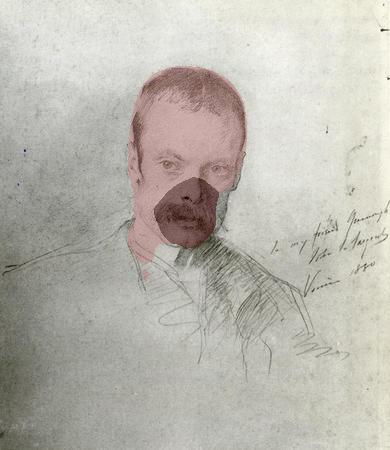 to my friend
John S. Sargent
Venice 1880